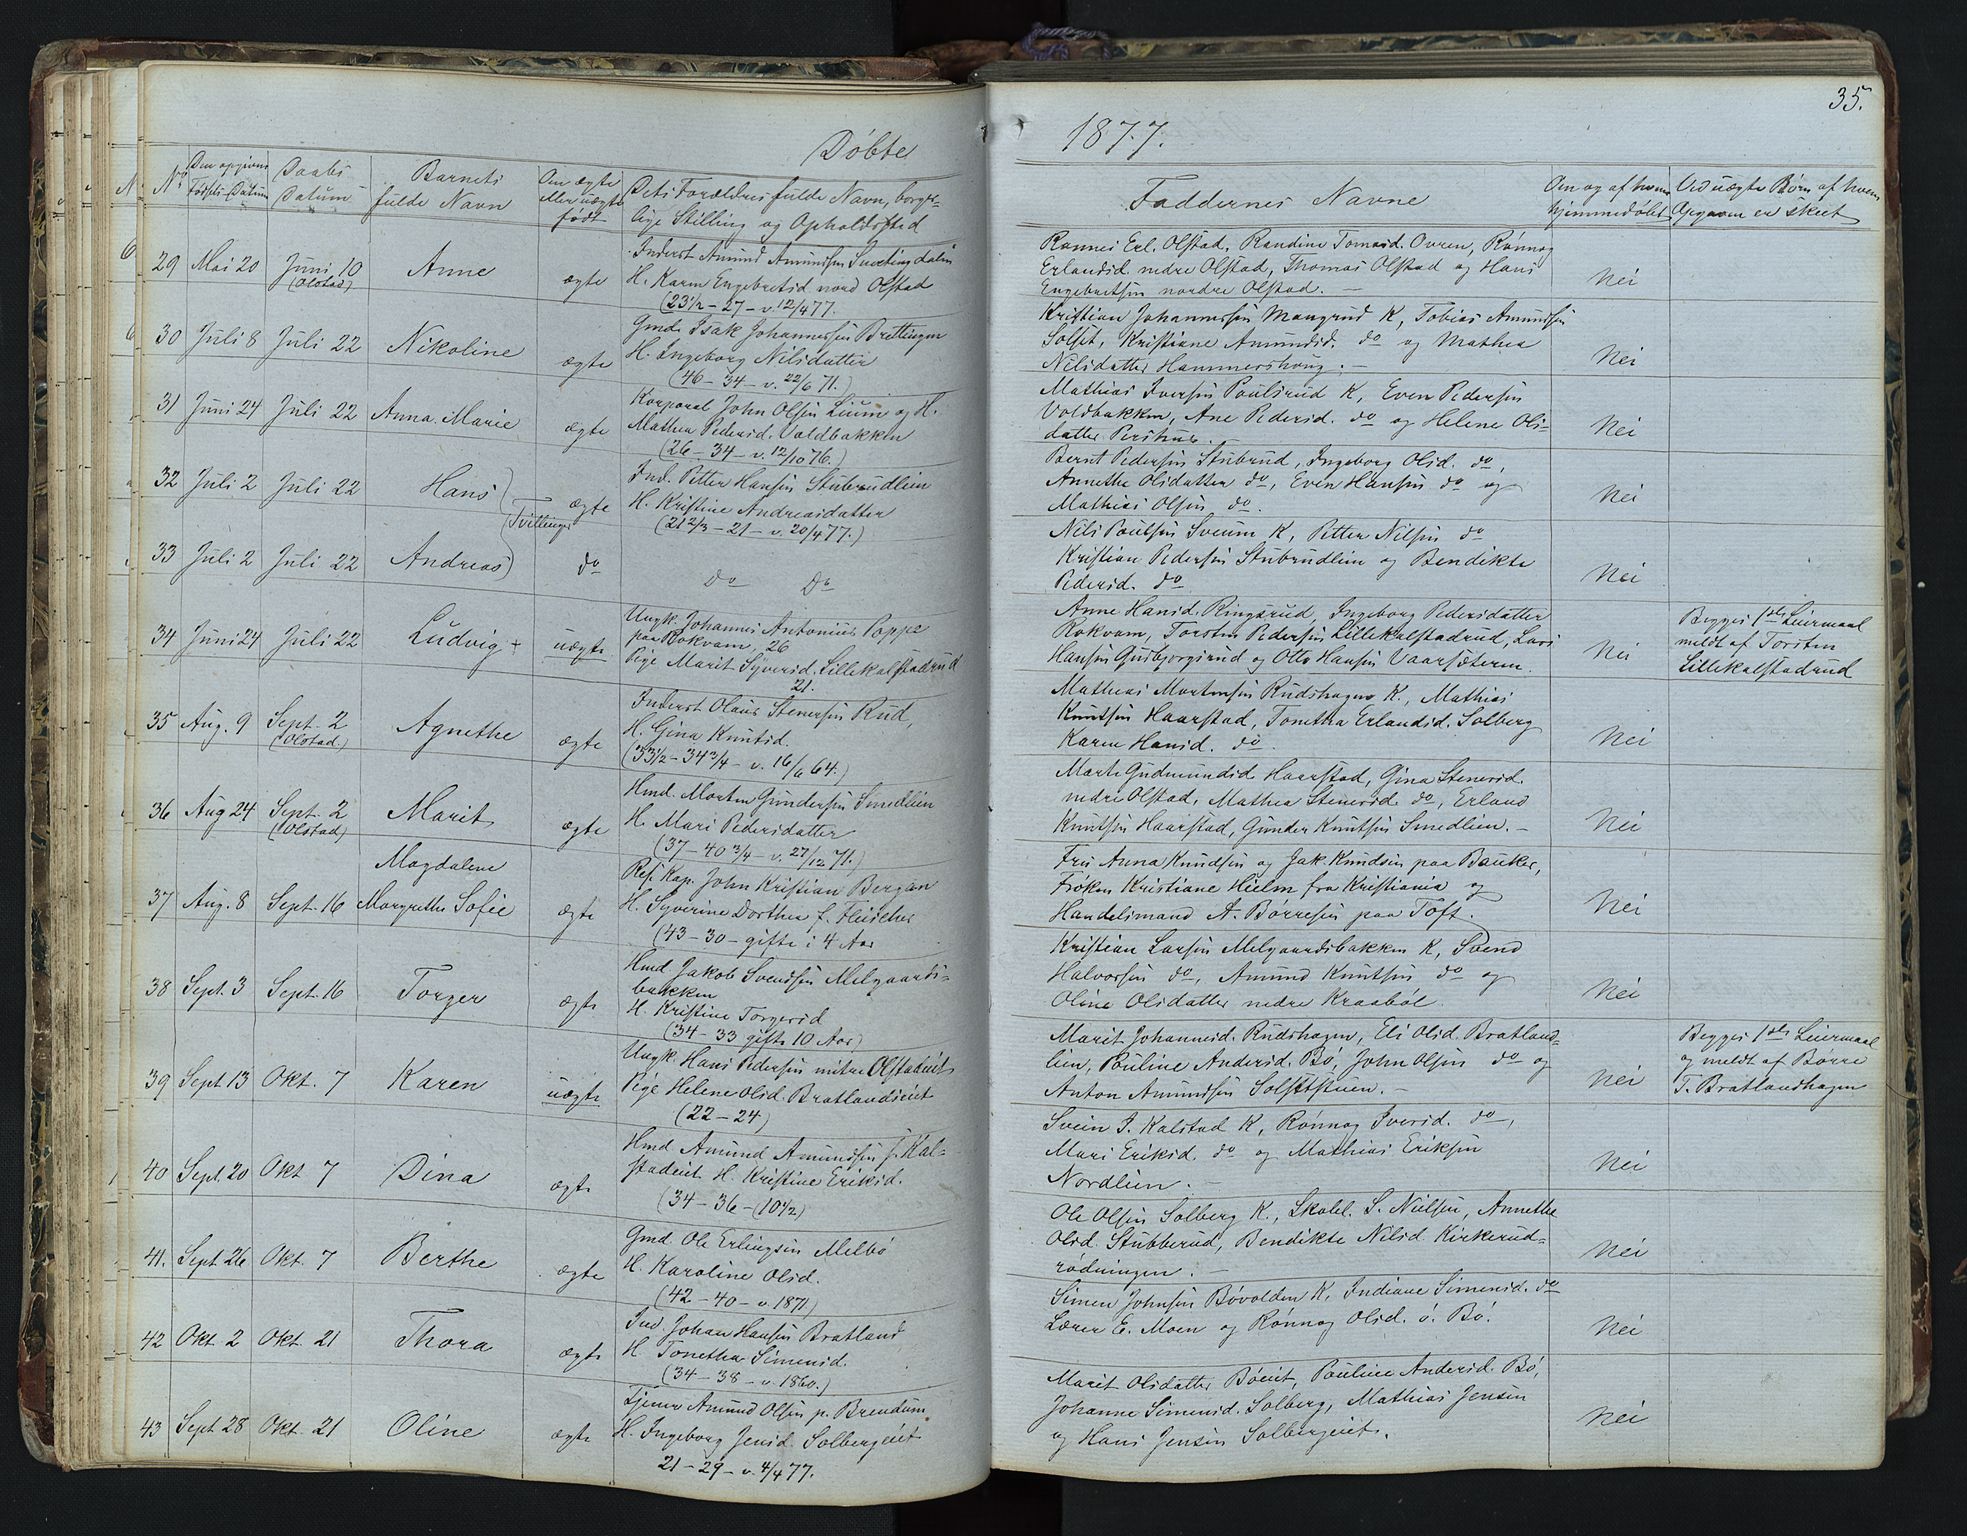 Døbte
No
Den opgivne Fødsels-Datum
Daabs Datum
Barnets fulde Navn
Om ægte eller uægte født
Dets Forældres fulde Navn, borger-
lige Stilling og Opholdssted
29 Mai 20 Juni 10 (Olstad) Anne ægte
Inderst Amund Amundsen Snertingdalen
H. Karen Engebretsd nord Olstad
(23½ – 27 – v. 12/4 77.
30 Juli 8 Juli 22 Nikoline ægte
Gmd. Isak Johannessen Brettingen
H. Ingeborg Nilsdatter
(46 – 34 – v. 22/6 71.)
31 Juni 24 Juli 22 Anna Marie ægte
Korporal John Olsen Lium og H.
Mathea Pedersd. Voldbakken
(26 – 34 – v. 12/10 76.)
32 Juli 2 Juli 22 Hans ægte
Tvillinger
Ind. Petter Hansen Stubrudlien
H. Kristine Andreasdatter
(21 2/3 – 21 – v. 20/4 77.)
33 Juli 2 Juli 22 Andreas do
Do Do
34 Juni 24 Juli 22 Ludvig + uægte
Ungk. Johannes Antonius Poppe
paa Rokvam, 26
Pige Marit Syversd. Lillekalstadrud
21.
35 Aug. 9 Sept. 2 (Olstad.) Agnethe ægte
Inderst Olaus Stenersen Rud,
H. Gina Knutsd.
(33½ – 34¾ – v. 16/6 64.)
36 Aug 24 Sept. 2 (Olstad) Marit ægte
Hmd. Morten Gundersen Smedlien
H. Mari Pedersdatter
(37 – 40¾ – v. 27/12 71.)
37 Aug. 8 Sept. 16 Magdalene
Margrethe Sofie ægte
Res. Kap. John Kristian Bergan
H. Syverine Dorthea f. Fleischer
(43 – 30 – gifte i 4 Aar
38 Sept. 3 Sept. 16 Torger ægte
Hmd Jakob Svendsen Melgaards-
bakken
H. Kristine Torgersd
(34 – 33 gifte 10 Aar)
39 Sept 13 Okt. 7 Karen uægte
Ungk. Hans Pedersen mitre Olstadeiet
Pige Helene Olsd. Bratlandseiet
(22 – 24)
40 Sept. 20 Okt 7 Dina ægte
Hmd Amund Amundsen s. Kal-
stadeiet H. Kristine Eriksd.
(34 – 36 – (10½)
41. Sept. 26 Okt. 7 Berthe ægte
Gmd Ole Erlingsen Melbö
H. Karoline Olsd.
(42 – 40 – v. 1871)
42 Okt. 2 Okt. 21 Thora ægte
Ind. Johan Hansen Bratland
H. Tonetha Simensd.
(34 – 38 – v. 1860.)
43 Sept. 28 Okt. 21 Oline ægte
Tjener Amund Olsen p. Brendum
H. Ingeborg Jensd. Solbergeiet
21 – 29 – v. 4/4 77.
35.
1877.
Faddernes Navne
Om og af hvem hjemmedøbt
Ved uægte Børn af hvem Opgaven er skeet
Rannei Erl. Olstad, Randine Tomasd. Ovren, Rønnog
Erlandsd. nedre Olstad, Thomas Olstad og Hans
Engebretsen nordre Olstad. –
Nei
Kristian Johannessen Mangrud K, Tobias Amundsen
Solset, Kristiane Amundsd. do og Mathea
Nilsdatter Hammershoug. –
Nei
Mathias Iversen Poulsrud K, Even Pedersen
Voldbakken, Ane Pedersd. do og Helene Ols-
datter Pershus. –
Nei
Bernt Pedersen Stubrud, Ingeborg Olsd. do,
Annethe Olsdatter do, Even Hansen do og
Mathias Olsen do.
Nei
Nils Poulsen Sveum K, Petter Nilsen do
Kristian Pedersen Stubrudlien og Bendikte
Pedersd. do
Nei
Anne Hansd. Ringsrud, Ingeborg Pedersdatter
Rokvam, Torsten Pedersen Lillekalstadrud, Lars
Hansen Gusbjorgsrud og Otto Hansen Vaarsæteren.
Nei
Begges 1ste Leiermaal
meldt af Torsten
Lillekalstadrud
Mathias Mortensen Rudshagen K., Mathias
Knutsen Haarstad, Tonetha Erlandsd. Solberg
Karen Hansd. do.
Nei
Marte Gudmundsd Haarstad, Gina Stenersd.
nedre Olstad, Mathea Stenersd. do, Erland
Knutsen Haarstad, Gunder Knutsen Smedlien. –
Nei
Fru Anna Knudsen og Jak. Knudsen paa Bauker,
Frøken Kristiane Hielm fra Kristiania og
Handelsmand A. Børresen paa Toft.
Nei
Kristian Larsen Melgaardsbakken K, Svend
Halvorsen do, Amund Knutsen do og
Oline Olsdatter nedre Kraabøl.
Nei
Marit Johannesd. Rudshagen, Eli Olsd. Bratland-
lien, Pauline Andersd. Bø, John Olsen do og
Anton Amundsen Solsetstuen. –
Nei
Begges 1ste Leiermaal
og meldt af Børre
T. Bratlandhagen
Svein I. Kalstad K, Rønnog Iversd. do,
Mari Eriksd. do og Mathias Eriksen
Nordlien. –
Nei
Ole Olsen Solberg K., Skolel. S. Nielsen, Annethe
Olsd. Stubberud, Bendikte Nilsd Kirkerud-
rødningen. –
Nei
Simen Johnsen Bøvolden K, Indiane Simensd. do
Lærer E. Moen og Rønnog Olsd. ö. Bö.
Nei
Marit Olsdatter Bøeiet, Pauline Andersd. Bø,
Johanne Simensd. Solberg, Mathias Jensen
og Hans Jensen Solbergeiet.
Nei